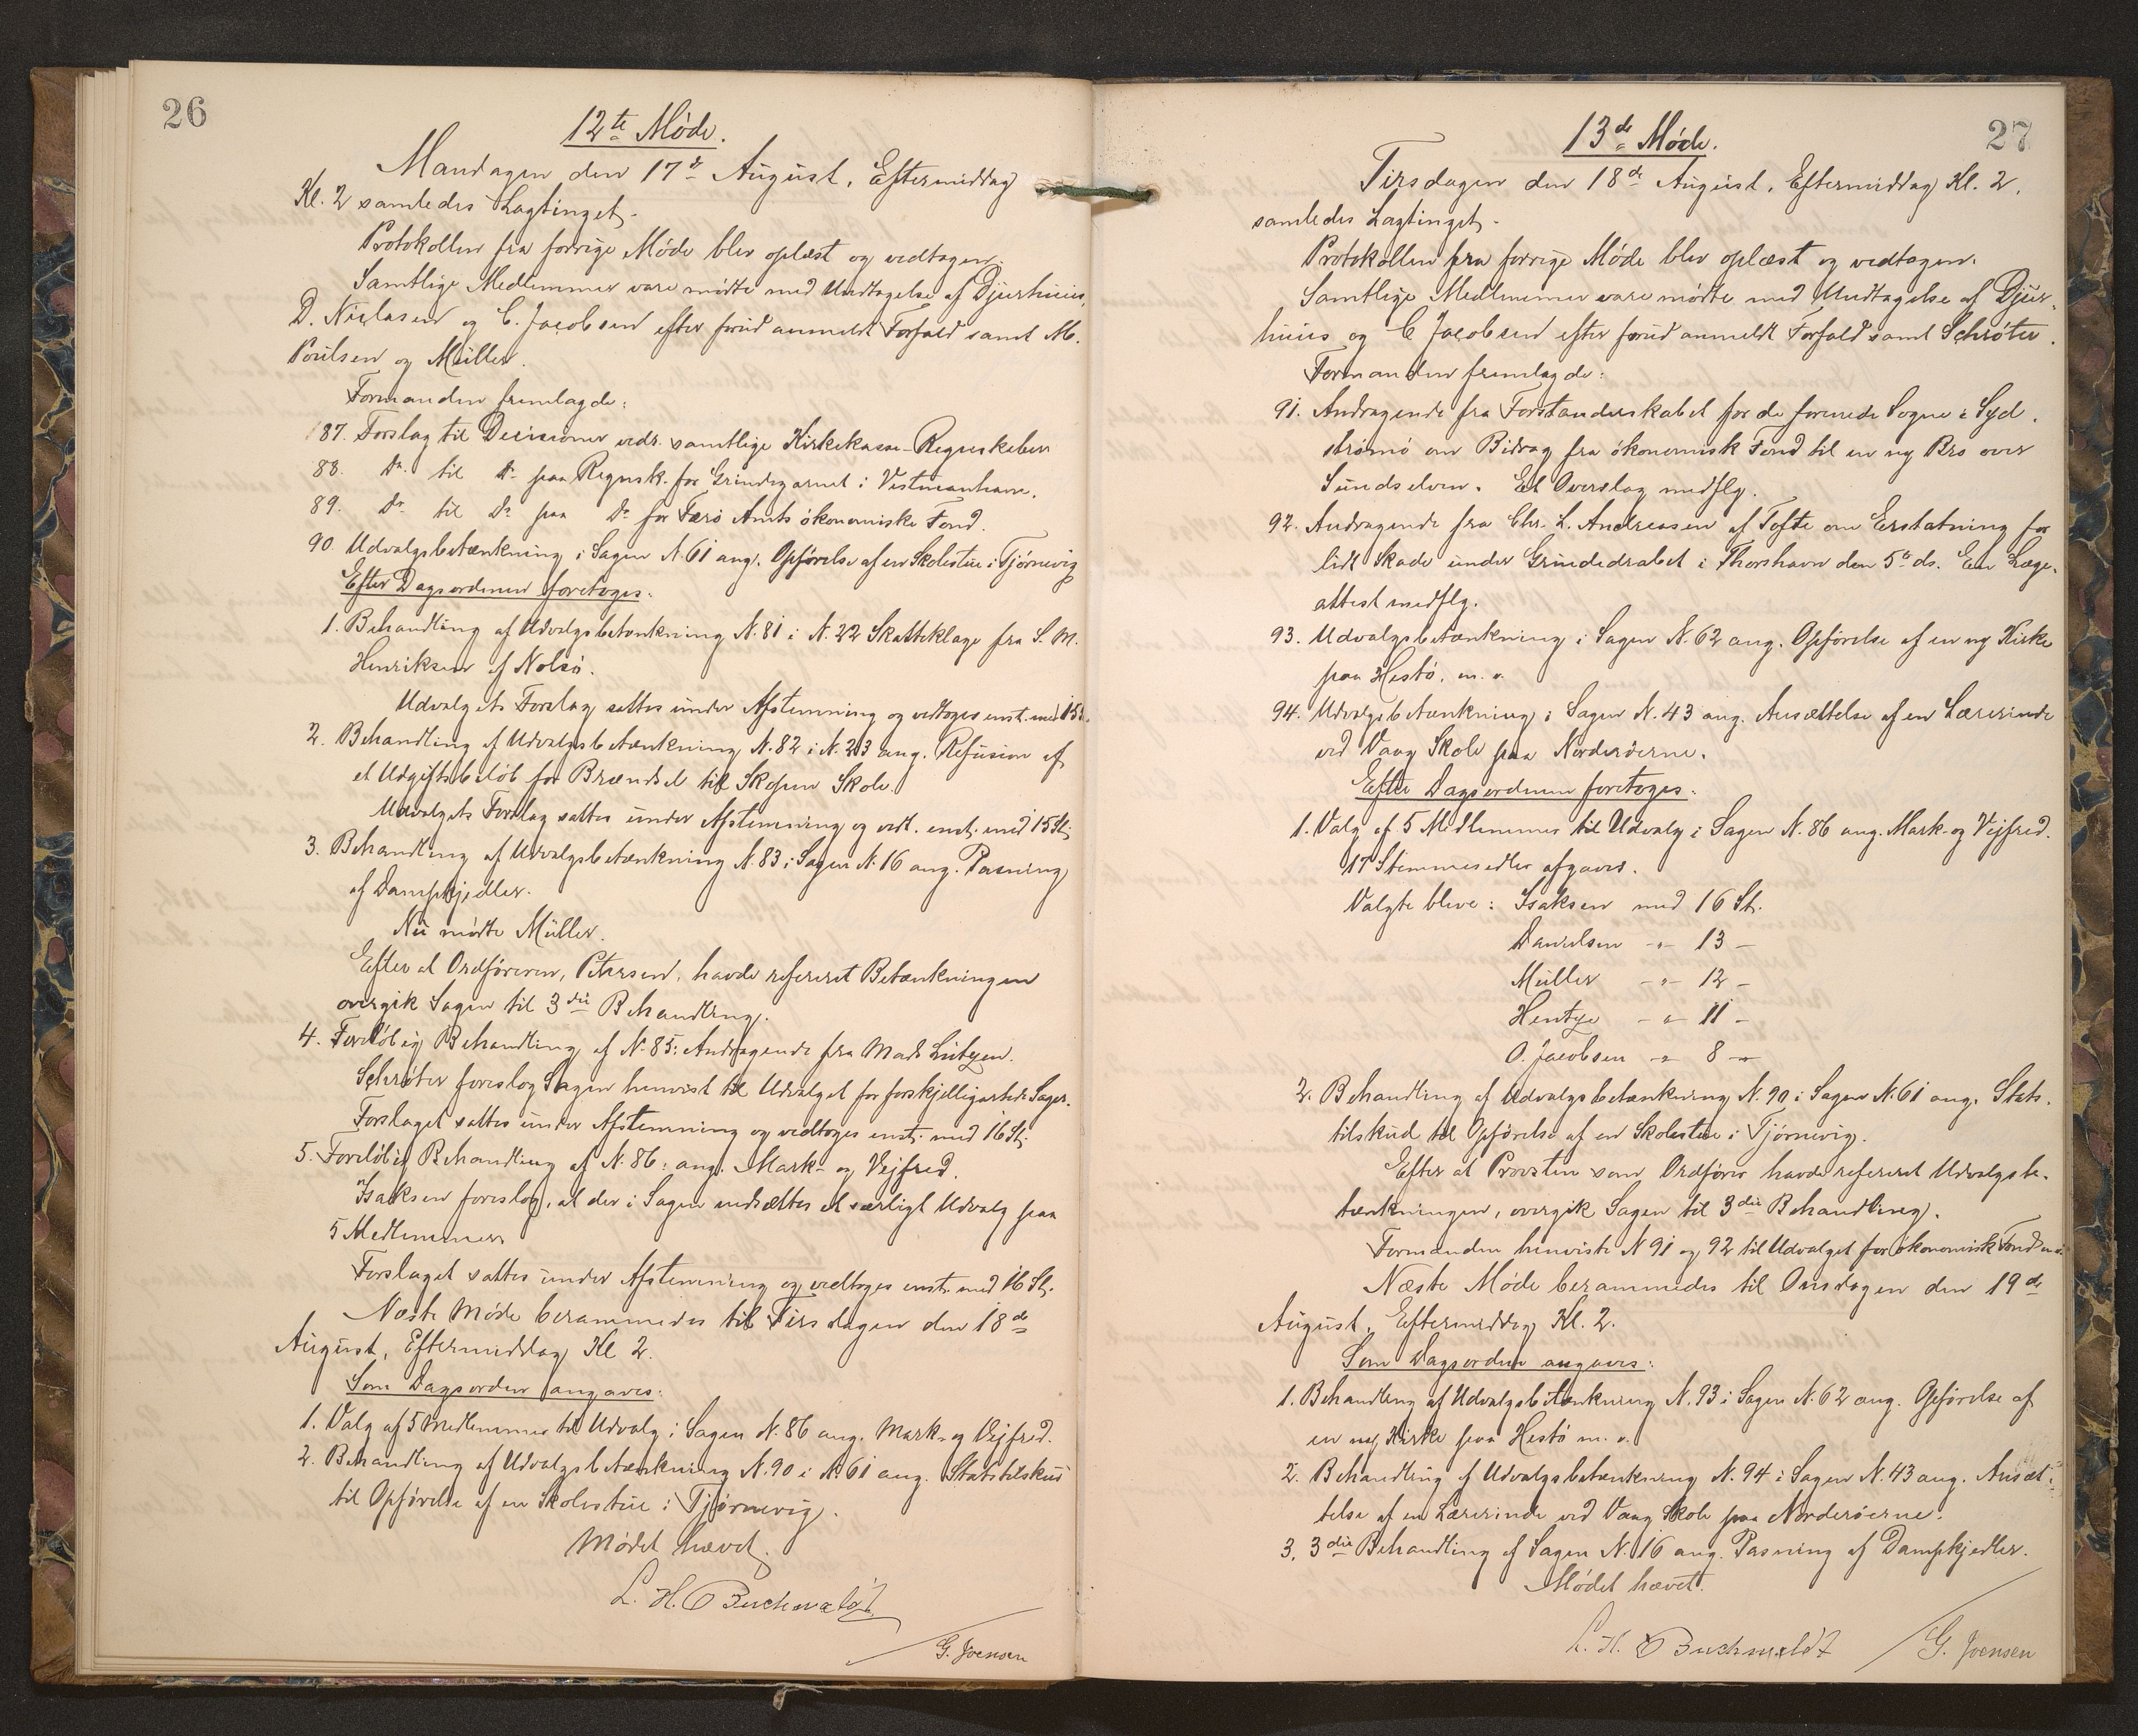 26
12te Møde.
Mandagen den 17de August, Eftermiddag
Kl. 2 samledes Lagtinget.
Protokollen fra forrige Møde blev oplæst og vedtagen.
Samtlige Medlemmer vare mødte med Undtagelse af Djurhuus,
D. Niclasen og C. Jacobsen efter forud anmeldt Forfald samt M.
Poulsen og Müller.
Formanden fremlagde:
87. Forslag til Decisioner vedr. samtlige Kirkekasse-Regnskaber
88. Do til Do paa Regnsk. for Grindegarnet i Vestmanhavn.
89. Do til Do paa Do for Færø Amts økonomiske Fond.
90. Udvalgsbetænkning i Sagen N. 61 ang. Opførelse af en Skolestue i Tjørnevig
Efter Dagsordenen foretoges:
1. Behandling af Udvalgsbetænkning N. 81 i N. 22 Skatteklage fra S. M.
Henriksen af Nolsø.
Udvalgets Forslag sattes under Afstemning og vedtoges enst. med 15 St.
2. Behandling af Udvalgsbetænkning N. 82 i N. 23 ang. Refusion af
et Udgiftsbeløb for Brændsel til Skopun Skole.
Udvalgets Forslag sattes under Afstemning og vedt. enst. med 15 St.
3. Behandling af Udvalgsbetænkning N. 83 i Sagen N. 16 ang. Pasning
af Dampkjedler.
Nu mødte Müller.
Efter at Ordføreren, Petersen, havde refereret Betænkningen
overgik Sagen til 3die Behandling.
4. Foreløbig Behandling af N. 85: Andragende fra Mads Lützen.
Schrøter foreslog Sagen henvist til Udvalget for forskjelligartede Sager.
Forslaget sattes under Afstemning og vedtoges enst. med 16 St.
5. Foreløbig Behandling af N. 86: ang. Mark- og Vejfred.
Isaksen foreslog, at der i Sagen nedsættes et særligt Udvalg paa
5 Medlemmer.
Forslaget sattes under Afstemning og vedtoges enst. med 16 St.
Næste Møde berammedes til Tirsdagen den 18de
August, Eftermiddag Kl 2.
Som Dagsorden angaves:
1. Valg af 5 Medlemmer til Udvalg i Sagen N. 86 ang. Mark- og Vejfred.
2. Behandling af Udvalgsbetænkning N. 90 i N. 61 ang. Statstilskud
til Opførelse af en Skolestue i Tjørnevig.
Mødet hævet.
L. H. Buchwaldt
G. Joensen
27
13de Møde.
Tirsdagen den 18de August, Eftermiddag Kl. 2.
samledes Lagtinget.
Protokollen fra forrige Møde blev oplæst og vedtagen.
Samtlige Medlemmer vare mødte med Undtagelse af Djur-
huus og C Jacobsen efter forud anmeldt Forfald samt Schrøter.
Formanden fremlagde:
91. Andragende fra Forstanderskabet for de forenede Sogne i Syd-
strømø om Bidrag fra økonomisk Fond til en ny Bro over
Sundselven. Et Overslag medflg.
92. Andragende fra Chr. L. Andreasen af Tofte om Erstatning for
lidt Skade under Grindedrabet i Thorshavn den 5te ds. En Læge-
attest medflg.
93. Udvalgsbetænkning i Sagen N. 62 ang. Opførelse af en ny Kirke
paa Hestø. m. v.
94. Udvalgsbetænkning i Sagen N. 43 ang. Ansættelse af en Lærerinde
ved Vaag Skole paa Norderøerne.
Efter Dagsordenen foretoges:
1. Valg af 5 Medlemmer til Udvalg i Sagen N. 86 ang. Mark- og Vejfred.
17 Stemmesedler afgaves.
Valgte bleve: Isaksen med 16 St.
Danielsen - " - 13 -
Müller - " - 12 -
Hentze - " - 11 -
O. Jacobsen - " - 8 -
2. Behandling af Udvalgsbetænkning N. 90 i Sagen N. 61 ang. Stats-
tilskud til Opførelse af en Skolestue i Tjørnevig.
Efter at Provsten som Ordfører havde refereret Udvalgsbe-
tænkningen, overgik Sagen til 3die Behandling.
Formanden henviste N 91 og 92 til Udvalget for økonomisk Fond
Næste Møde berammedes til Onsdagen den 19de
August, Eftermiddag Kl. 2.
Som Dagsorden angaves:
1. Behandling af Udvalgsbetænkning N. 93 i Sagen N. 62 ang. Opførelse af
en ny Kirke paa Hestø m. v.
2. Behandling af Udvalgsbetænkning N. 94 i Sagen N. 43 ang. Ansæt-
telse af en Lærerinde ved Vaag Skole paa Norderøerne.
3. 3die Behandling af Sagen N. 16 ang. Pasning af Dampkjedler.
Mødet hævet.
L. H. Buchwaldt / G. Joensen